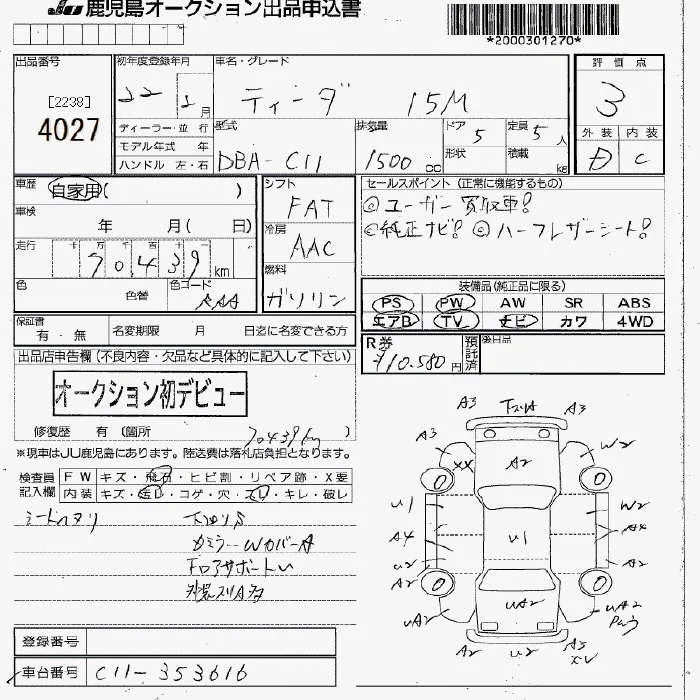 鹿児島オークション出品申込書
*2000301270*
出品番号
[2238]
4027
初年度登録年月
22 月
車名・グレード
ティーダ 15M
評価点
3
外装 内装
D C
ディーラー・並 行
モデル年式 年
ハンドル 左・右
型式
DBA-C11
排気量
1500 cc
ドア 5
形状
定員 5 人
積載 kg
車歴 自家用( )
車検 年 月( 日)
走行 十 万 千 百 十
70439 km
色 色替
色コード
シフト
FAT
冷房
AAC
燃料
ガソリン
セールスポイント (正常に機能するもの)
◎ユーザー買取車!
◎純正ナビ! ◎ハーフレザーシート!
装備品(純正品に限る)
PS PW AW SR ABS
エアB TV ナビ カワ 4WD
保証書 有・無
名変期限 月 日迄に名変できる方
R券
¥10.580円
預託済
後日品
出品店申告欄(不良内容・欠品など具体的に記入して下さい)
オークション初デビュー
修復歴 有 (箇所 70439km )
※現車はJU鹿児島にあります。陸送費は落札店負担となります。
検査員記入欄
FW キズ・飛石・ヒビ割・リペア跡・X要
内装 キズ・コゲ・穴・スレ・キレ・破レ
シートヘタリ
下回りS
カミラーWカバーA
A3 下スリA A3
A3 XX A2 W2
0 0
U1 W2
A4 U1 A4
U2 A2
A2
0 0
UA2 UA2 UA2
A2 U2 A3
XU
登録番号
車台番号 C11-353616